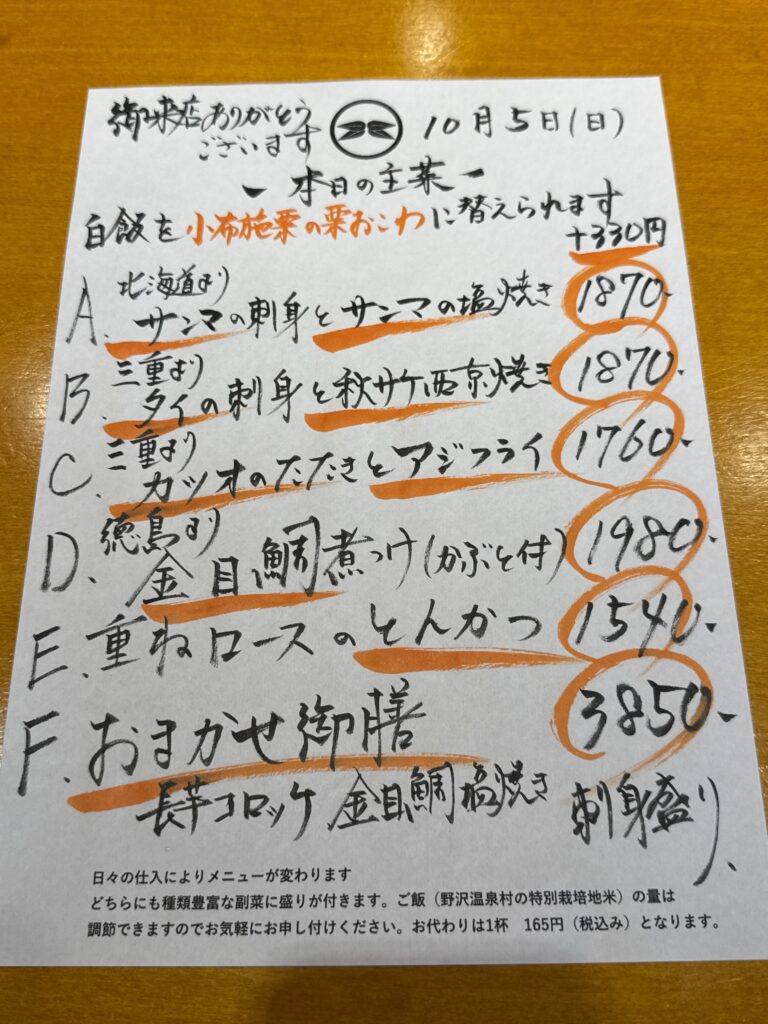 御来店ありがとう
ございます
10月5日(日)
- 本日の主菜 -
白飯を小布施栗の栗おこわに替えられます
+330円
北海道より
A. サンマの刺身とサンマの塩焼き 1870-
三重より
B. タイの刺身と秋サケ西京焼き 1870-
三重より
C. カツオのたたきとアジフライ 1760-
徳島より
D. 金目鯛煮つけ(かぶと付) 1980-
E. 重ねロースのとんかつ 1540-
F. おまかせ御膳 3850-
長芋コロッケ 金目鯛塩焼き 刺身盛り、
日々の仕入によりメニューが変わります
どちらにも種類豊富な副菜に盛りが付きます。ご飯（野沢温泉村の特別栽培地米）の量は
調節できますのでお気軽にお申し付けください。お代わりは1杯　165円（税込み）となります。